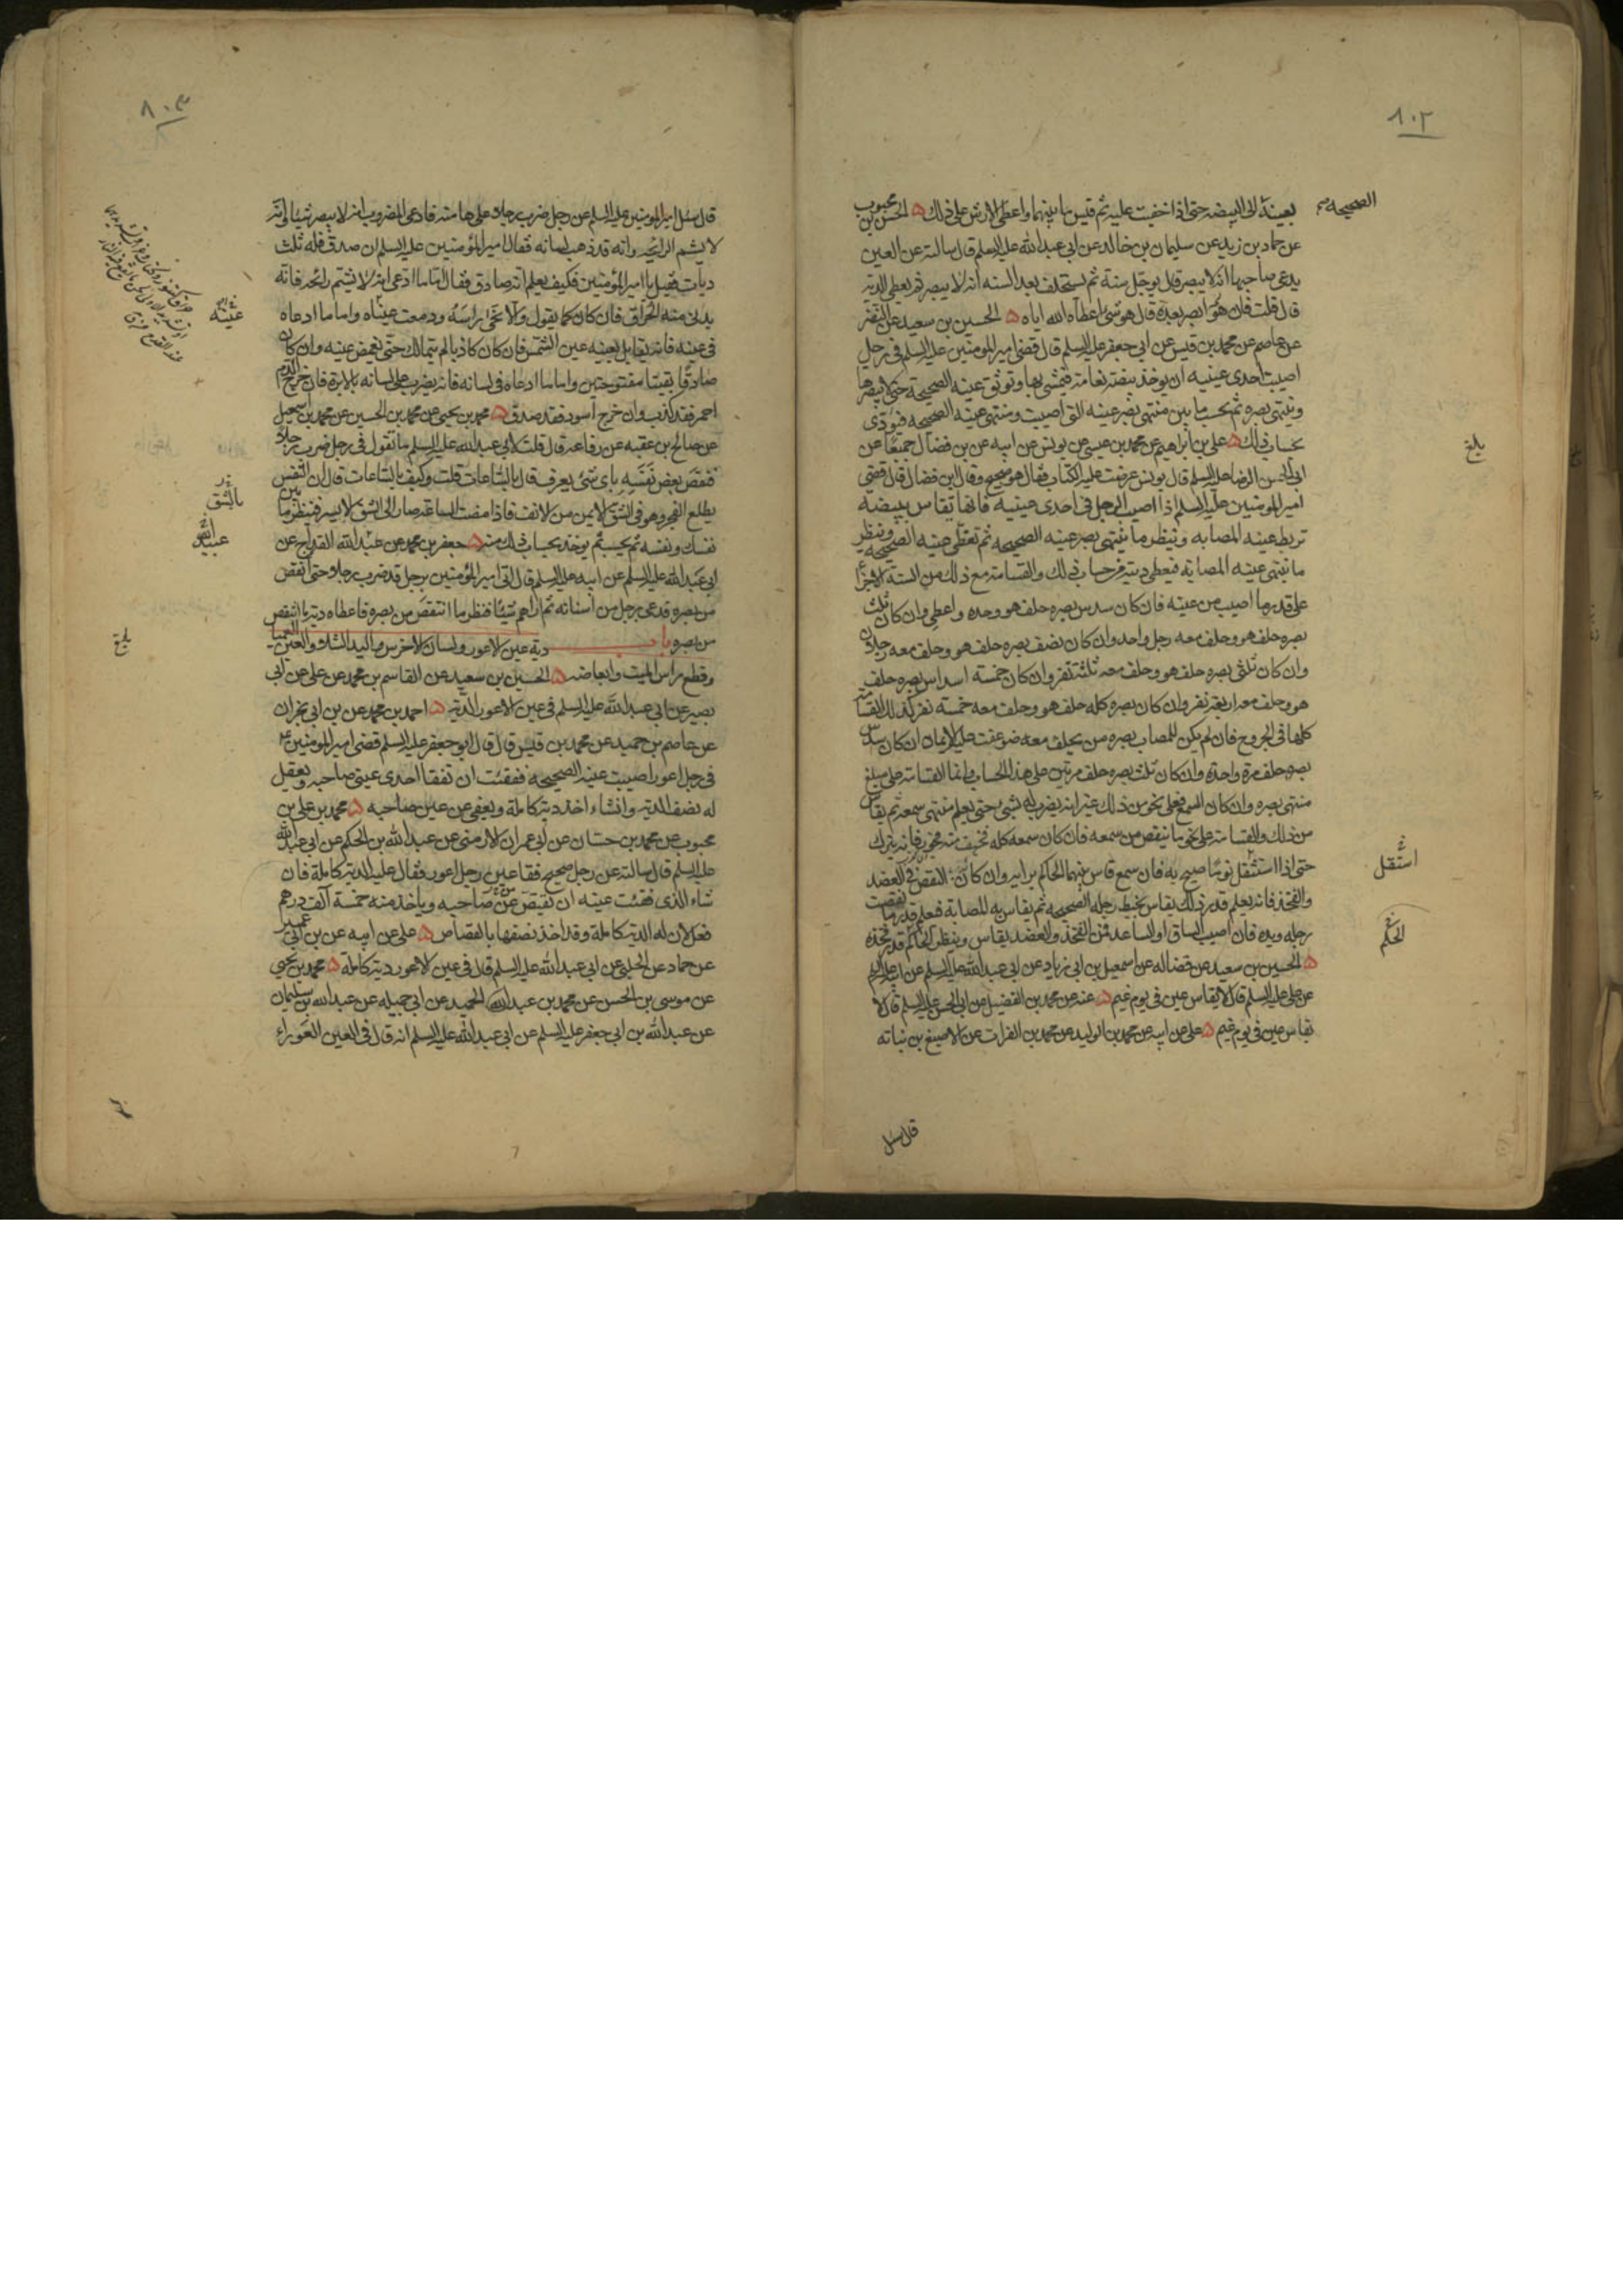 ٨٠٢
الصحيحة
بعينه الى البيضه حتى اذا خفيت عليه ثم قيس ما بينهما واعطى الارش على ذلك ه الحسن بن محبوب
عن حماد بن زيد عن سليمان بن خالد عن ابى عبد الله عليه السلم قال سالته عن العين
يدعى صاحبها انه لا يبصر قال يوجل سنة ثم يستحلف بعد السنه انه لا يبصر ثم يعطى الديه
قال قلت فان هو ابصر بعده قال هو شئ اعطاه الله اياه ه الحسين بن سعيد عن النضر
عن عاصم عن محمد بن قيس عن ابى جعفر عليه السلم قال قضى امير المومنين عليه السلم فى رجل
اصيبت احدى عينيه ان يوخذ بيضة نعامة فيمشى بها وتوثق عينه الصحيحة حتى لا يبصرها
وينتهى بصره ثم يحسب ما بين منتهى بصر عينه التى اصيبت ومنتهى عينه الصحيحه فيؤدى
بحساب ذلك ه على بن ابراهيم عن محمد بن عيسى عن يونس عن ابيه عن بن فضال جميعا عن
بلغ
ابى الحسن الرضا عليه السلم قال يونس عرضت عليه الكتاب فقال هو صحيح وقال بن فضال قال قضى
امير المومنين عليه السلم اذا اصيب الرجل فى احدى عينيه فانها تقاس ببيضه
تربط عينه المصابه وينظر ما ينتهى بصر عينه الصحيحه ثم تغطى عينه الصحيحه وينظر
ما ينتهى عينه المصابه فيعطى ديته من حساب ذلك والقسامة مع ذلك من الستة الاجزا
على قدر ما اصيب من عينه فان كان سدس بصره حلف هو وحده واعطى وان كان ثلث
بصره حلف هو وحلف معه رجل واحد وان كان نصف بصره حلف هو وحلف معه رجلان
وان كان ثلثى بصره حلف هو وحلف معه ثلثة نفر وان كان خمسة اسداس بصره حلف
هو وحلف معه اربعة نفر وان كان بصره كله حلف هو وحلف معه خمسة نفر كذلك القسامة
كلها فى الجروح فان لم يكن للمصاب بصره من يحلف معه ضوعفت عليه الايمان ان كان سدس
بصره حلف مرة واحدة وان كان ثلث بصره حلف مرتين على هذا الحساب وانما القسامة على مبلغ
منتهى بصره وان كان السمع فعلى نحو من ذلك غير انه يضرب له بشئ حتى يعلم منتهى سمعه ثم يقاس
من ذلك والقسامة على نحو ما ينقص من سمعه فان كان سمعه كله فخيف منه فجور فانه يترك
استثقل
حتى اذا استثقل نوما صيح به فان سمع قاس بينهما الحاكم برايه وان كان النقص فى العضد
والفخذ فانه يعلم قدر ذلك يقاس بخيط رجله الصحيحه ثم يقاس به المصابة فيعلم قدر ما نقصت
الحكم
رجله ويده فان اصيب الساق او الساعد فمن الفخذ والعضد يقاس وينظر الحاكم قدر فخذه
ه الحسين بن سعيد عن فضاله عن اسمعيل بن ابى زياد عن ابى عبد الله عليه السلم عن ابيه عليه السلم
عن على عليه السلم قال لا يقاس عين فى يوم غيم ه عنه عن محمد بن الفضيل عن ابى الحسن عليه السلم قال لا
تقاس عين فى يوم غيم ه على عن ابيه عن محمد بن الوليد عن محمد بن الفرات عن الاصبغ بن نباته
قال سئل
٨٠٣
قال سئل امير المومنين عليه السلم عن رجل ضرب رجلا على هامته فادعى المضروب انه لا يبصر شيئا وانه
لا يشم الرائحه وانه قد ذهب لسانه فقال امير المؤمنين عليه السلم ان صدق فله ثلث
ديات فقيل يا امير المؤمنين فكيف يعلم انه صادق فقال اما ما ادعى انه لا يشتم رائحه فانه
يدنى منه الحراق فان كان كما يقول والا نحى راسه ودمعت عيناه واما ما ادعاه
عينه
فى عينه فانه يقابل بعينه عين الشمس فان كان كاذبا لم يتمالك حتى يغمض عينه وان كان
صادقا بقيتا مفتوحتين واما ما ادعاه فى لسانه فانه يضرب على لسانه بالابرة فان خرج الدم
احمر فقد كذب وان خرج اسود فقد صدق ه محمد بن يحيى عن محمد بن الحسين عن محمد بن اسمعيل
عن صالح بن عقبه عن رفاعه قال قلت لابى عبد الله عليه السلم ما تقول فى رجل ضرب رجلا
فنقص بعض نفسه باى شئ يعرف قال بالساعات قلت وكيف بالساعات قال ان النفس
بالشق
يطلع الفجر وهو فى الشق الايمن من الانف فاذا مضت الساعة صار الى الشق الايسر فتنظر ما بين
نفسك ونفسه ثم يحسب ثم يوخذ بحساب ذلك منه ه جعفر بن محمد عن عبد الله القداح عن
عبيد الله
ابى عبد الله عليه السلم عن ابيه عليه السلم قال اتى امير المؤمنين برجل قد ضرب رجلا حتى انتقص
من بصره فدعى برجل من اسنانه ثم اراهم شيئا فنظر ما انتقص من بصره فاعطاه دية ما انتقص
من بصره باب دية عين الاعور ولسان الاخرس واليد الشلاء والعين العميا
بلغ
وقطع راس الميت وابعاضه ه الحسين بن سعيد عن القاسم بن محمد عن على عن ابى
بصير عن ابى عبد الله عليه السلم فى عين الاعور الدية ه احمد بن محمد عن بن ابى نجران
عن عاصم بن حميد عن محمد بن قيس قال قال ابو جعفر عليه السلم قضى امير المومنين ع
فى رجل اعور اصيبت عينه الصحيحه ففقئت ان تفقا احدى عينى صاحبه ويعقل
له نصف الدية وان شاء اخذ دية كاملة ويعفى عن عين صاحبه ه محمد بن على بن
محبوب عن محمد بن حسان عن ابى عمران الارمنى عن عبد الله بن الحكم عن ابى عبد الله
عليه السلم قال سالته عن رجل صحيح فقا عين رجل اعور فقال عليه الدية كاملة فان
شاء الذى فقئت عينه ان يقتص من صاحبه وياخذ منه خمسة آلف درهم
فعل لان له الدية كاملة وقد اخذ نصفها بالقصاص ه على عن ابيه عن بن ابى عمير
عن حماد عن الحلبى عن ابى عبد الله عليه السلم قال فى عين الاعور دية كاملة ه محمد بن يحيى
عن موسى بن الحسن عن محمد بن عبد الحميد عن ابى جميله عن عبد الله بن سليمان
عن عبد الله بن ابى جعفر عليه السلم عن ابى عبد الله عليه السلم انه قال فى العين العوراء